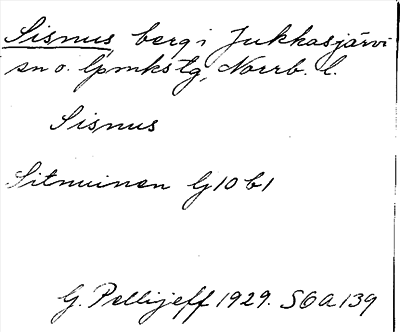 Sisnus, berg i Jukkasjärvi
sn o. lpmkstg, Norrb. l.
Sisnus
Sitnuinen G10b1
G. Pellijeff 1929. SOA139